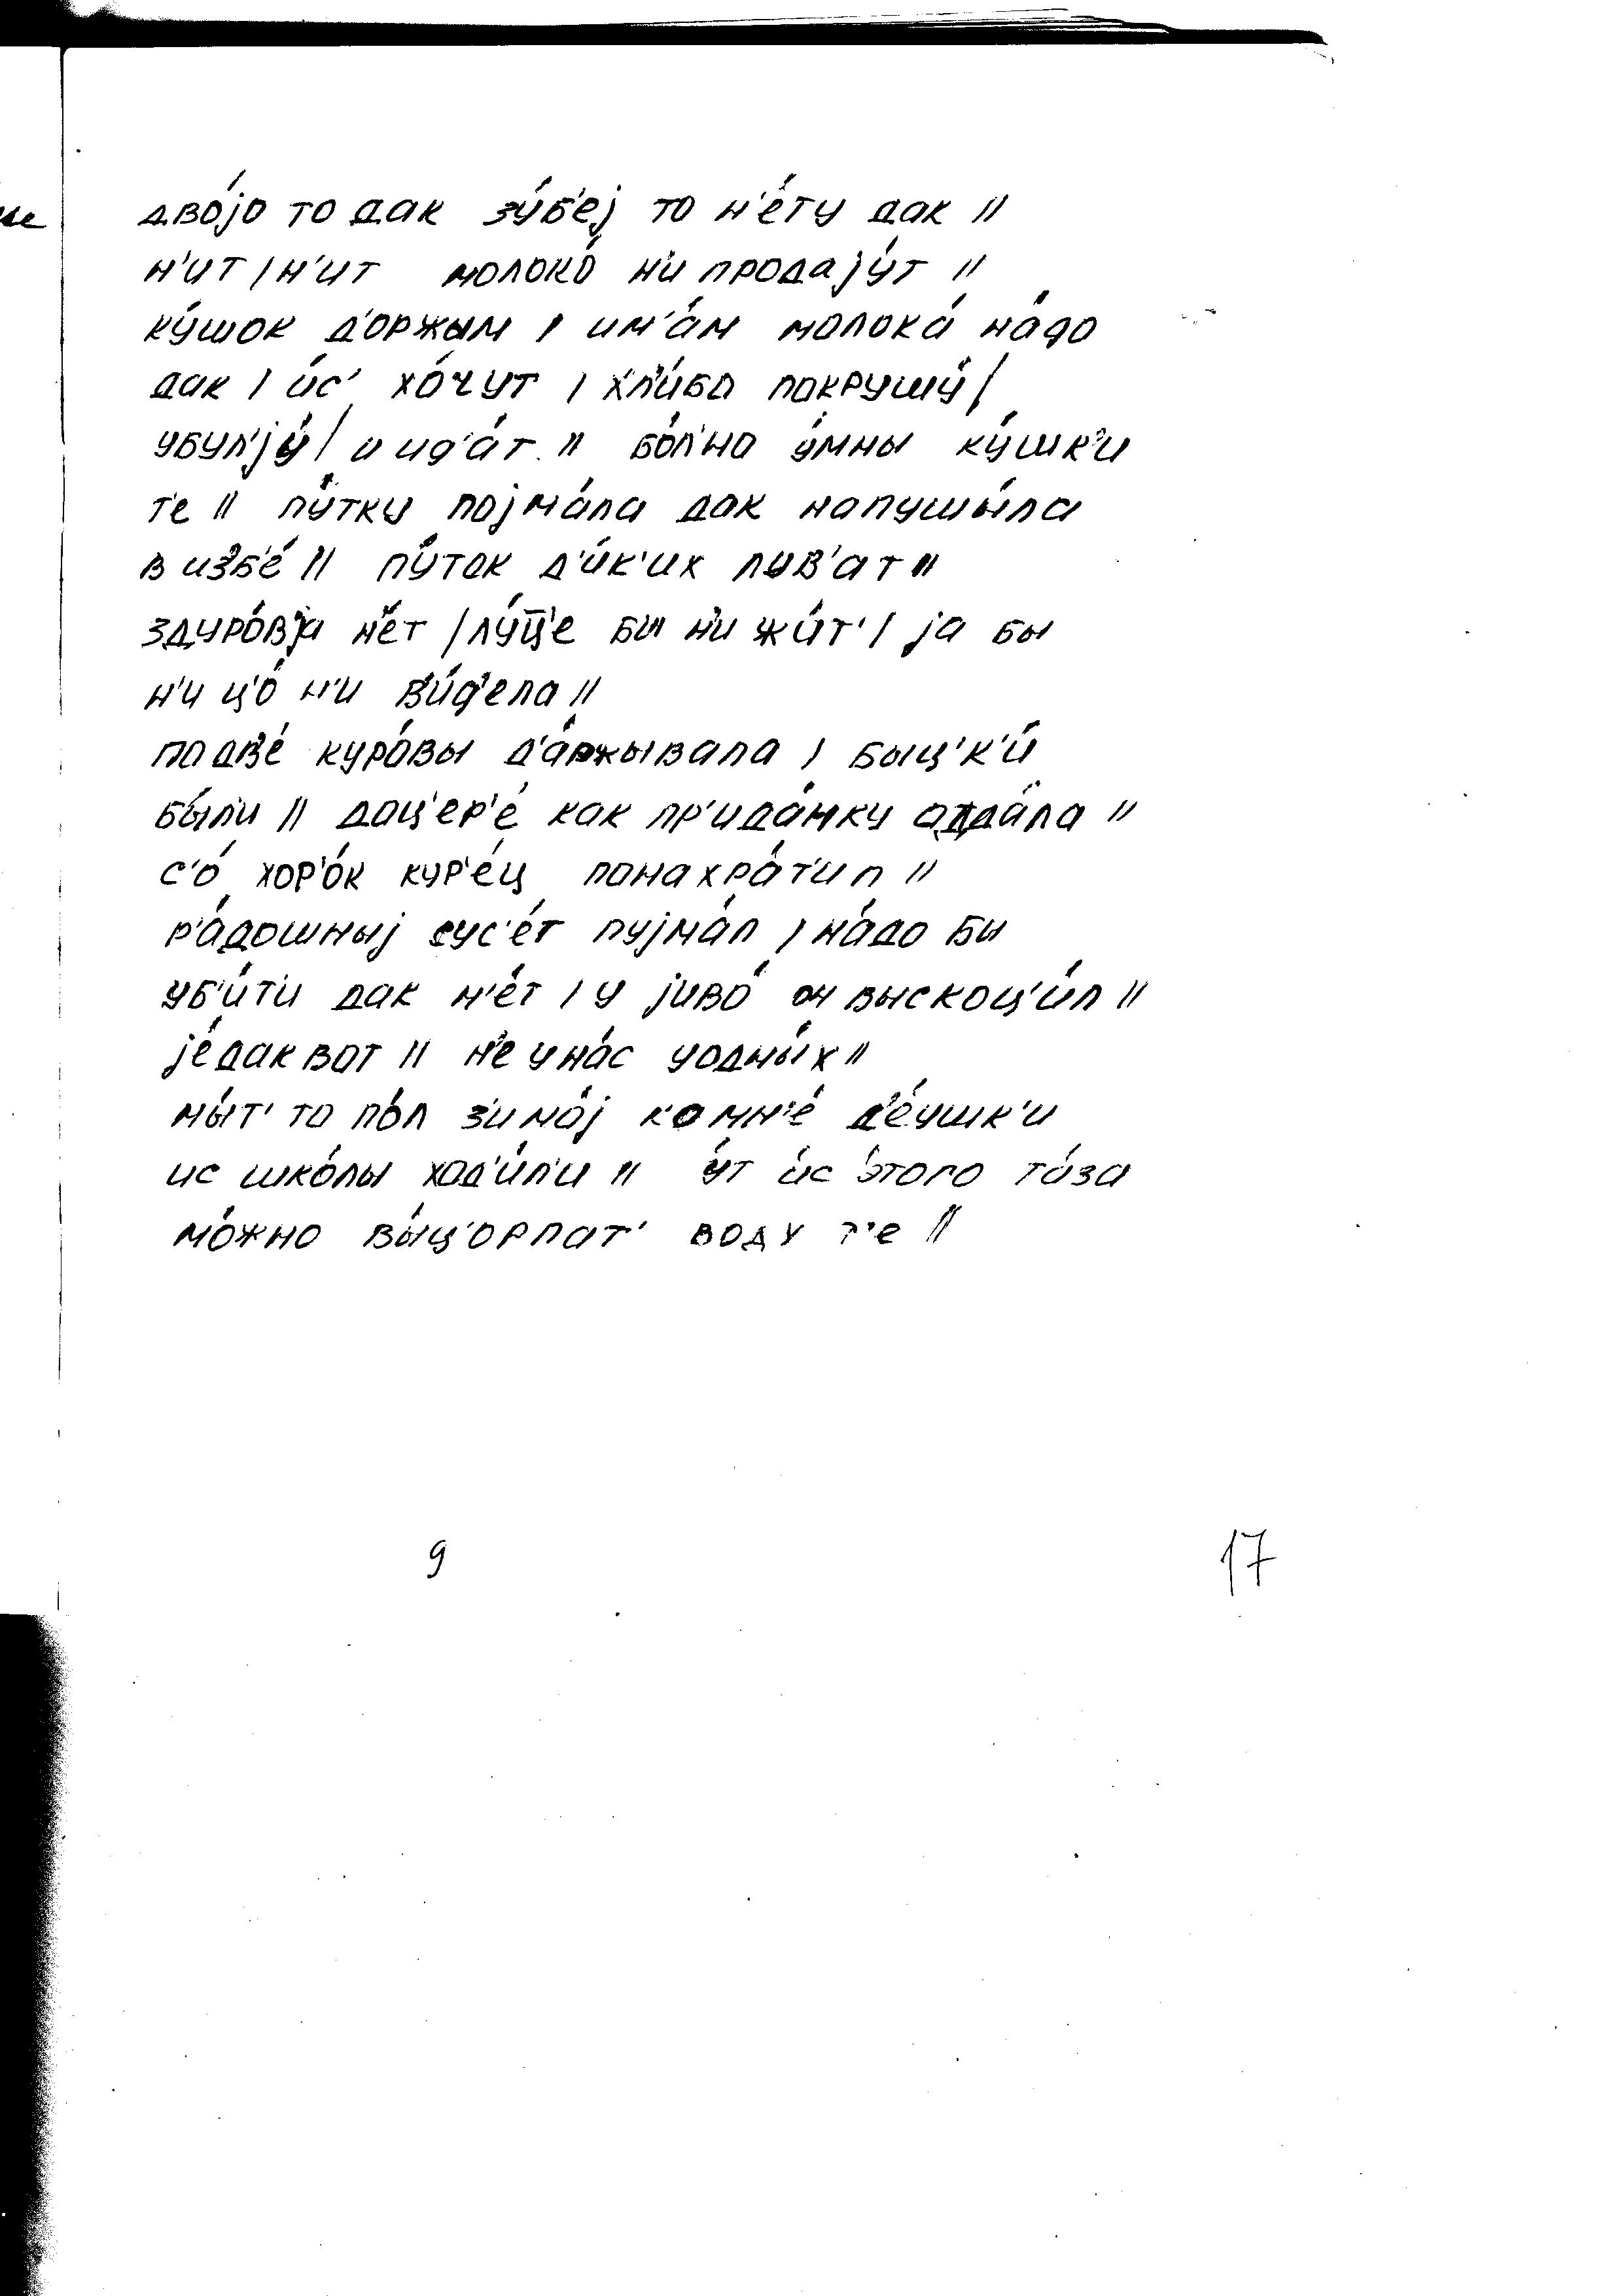 дво́jо то дак зу́б'еj то н'е́ту дак //
н'ит / н'ит молоко́ н'и продаjу́т //
ку́шок д'оржым / им'а́м молока́ на́до
дак / и́с' хо́чут / хл'и́ба покрушу́ /
убул'jу́ / и ид'а́т // бо́л'но у́мны ку́шк'и
т'е // пу́тку поjма́ла дак напушы́ла
в изб'е́ // пу́ток д'и́к'их лув'ат //
здуро́вjа н'е́т / лу́ц̄'е бы н'и жи́т' / jа бы
н'и ц'о́ н'и в'и́д'ела //
по дв'е́ куро́вы д'а́ржывала / быц'к'и́
бы́ли // доц'ер'е́ как пр'ида́нку оддала́ //
с'о́ хор'о́к кур'е́ц понахра́т'ил //
р'а́дошныj сус'е́т пуjма́л / на́до бы
уб'и́т'и дак н'е́т / у jиво́ он выскоц'и́л //
jе́дак вот // н'е у на́с у одны́х //
мы́т' то по́л з'имо́j ко мн'е́ д'е́ушк'и
ис шко́лы ход'и́л'и // у́т и́с э́того та́за
мо́жно вы́ц'орпат' воду т'е //
9
17